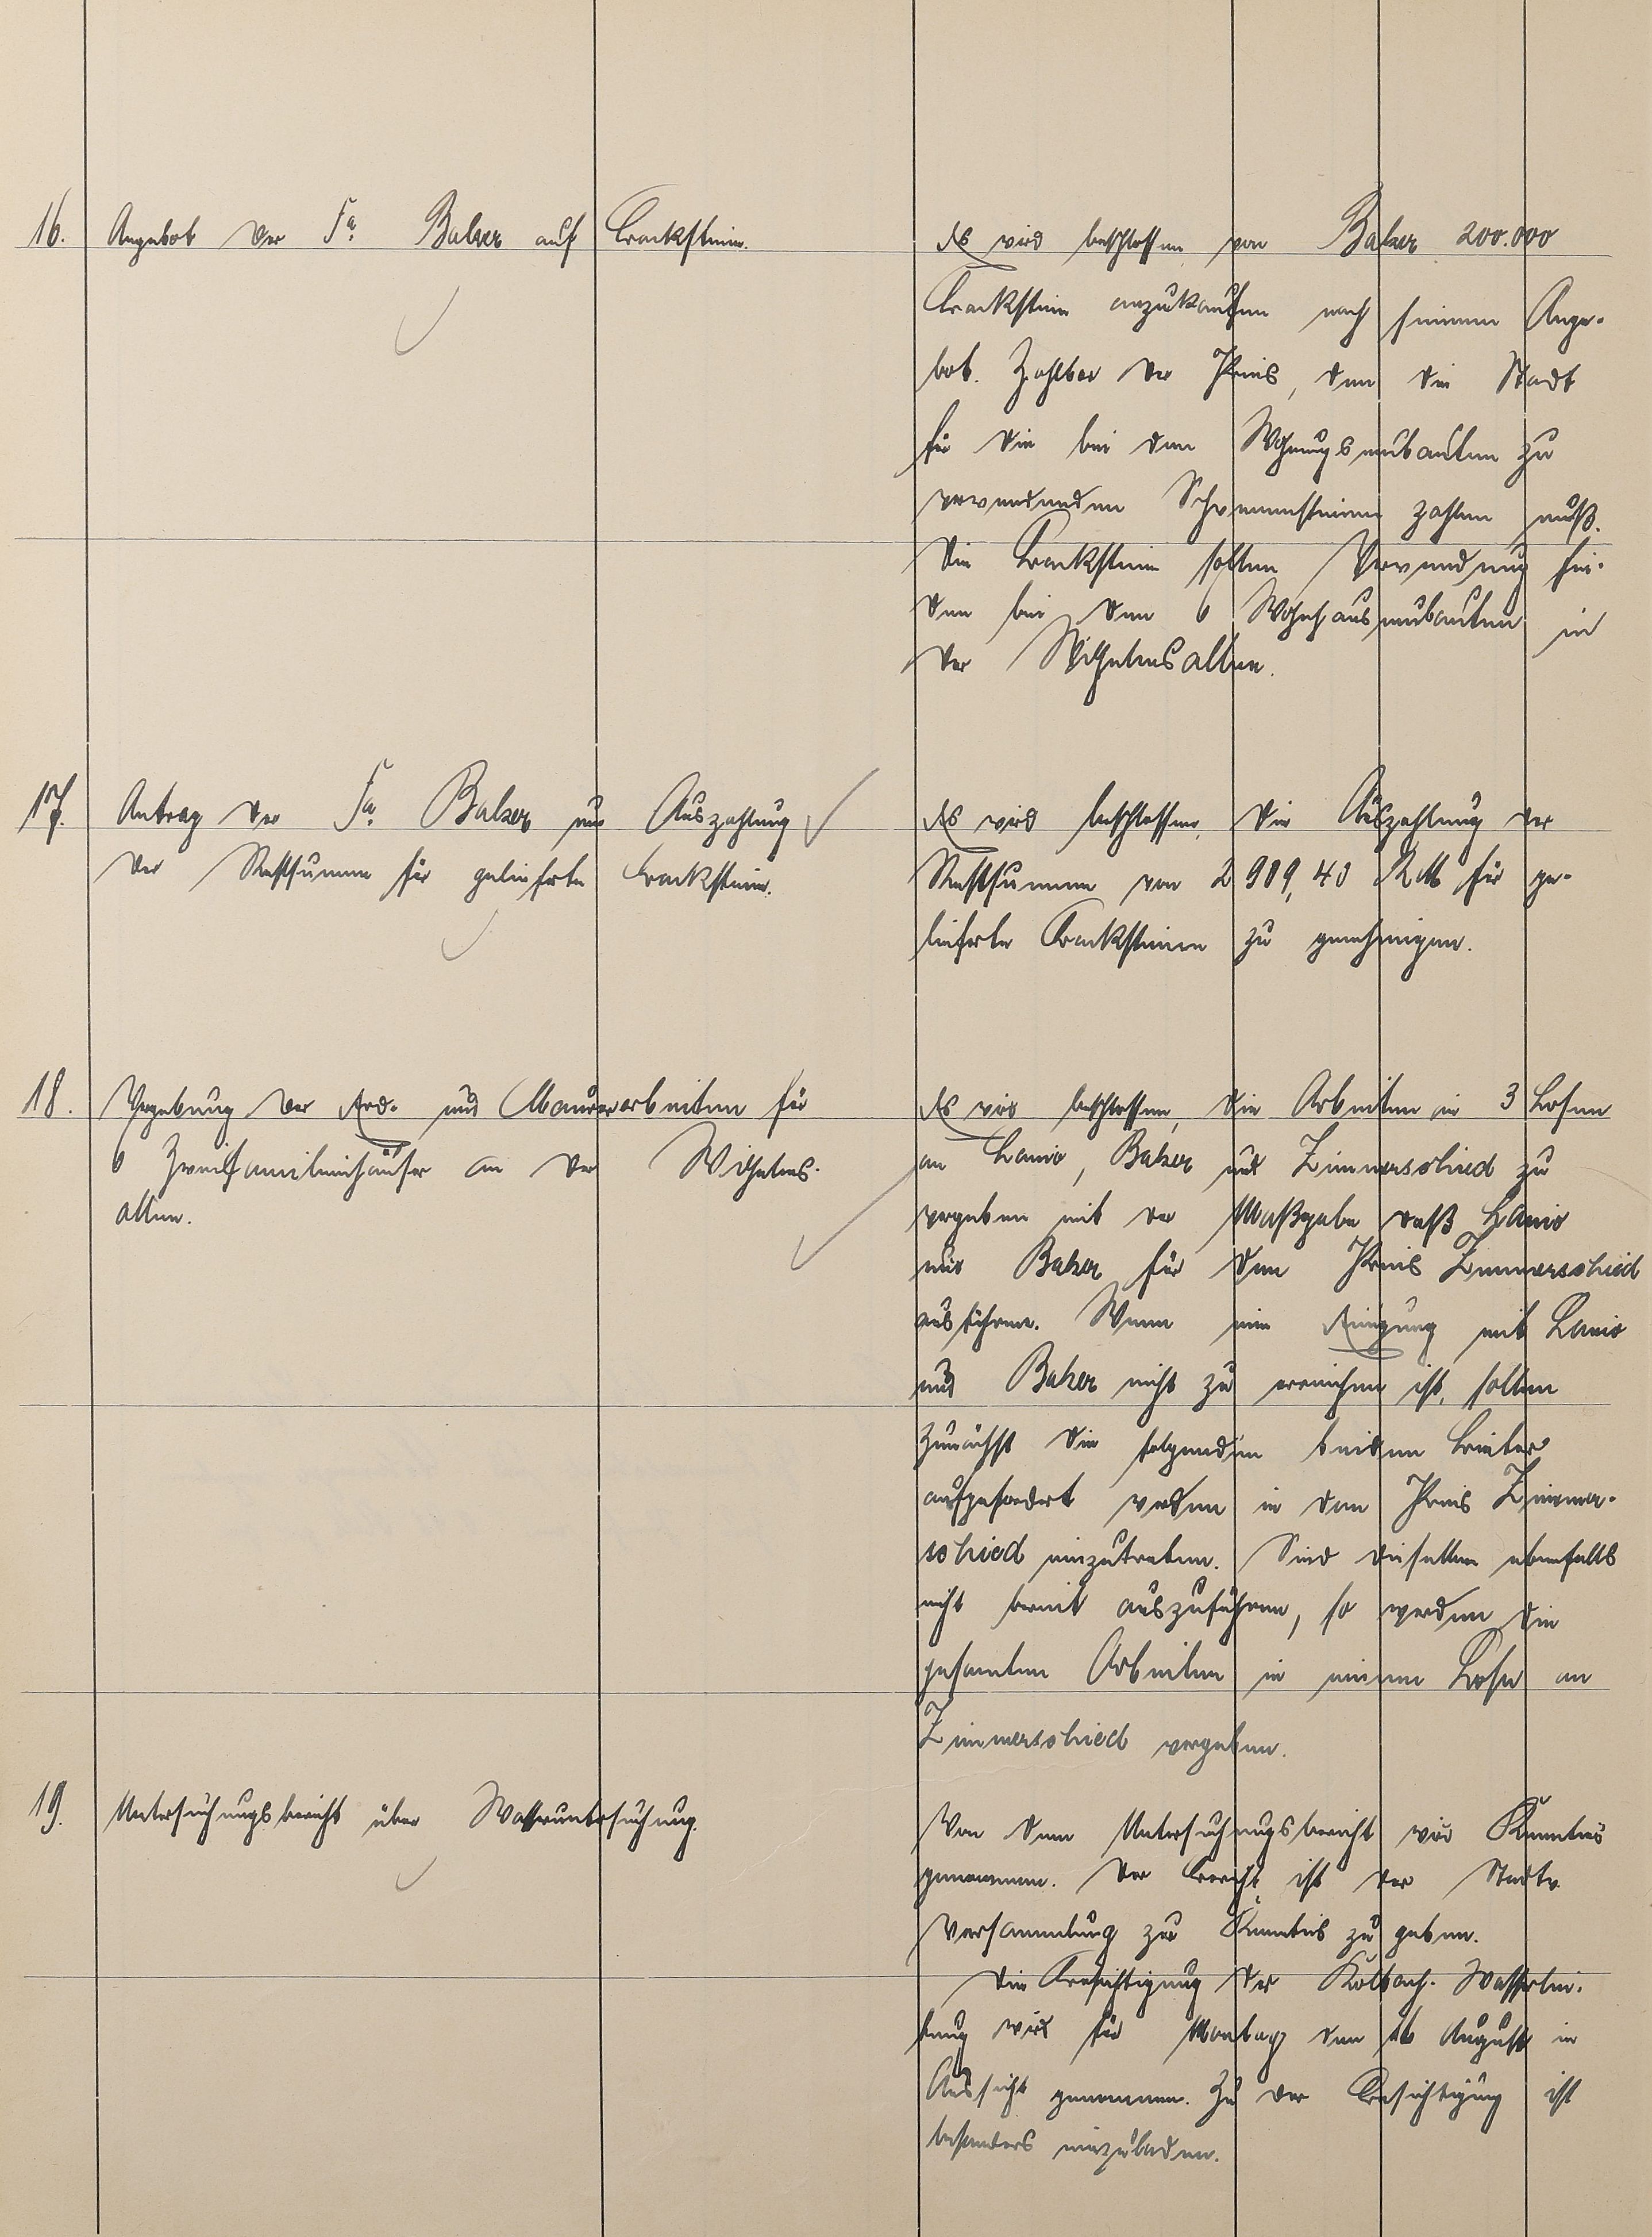 16. Angebot der Fa. Balzer auf Backsteine.
Es wird beschlossen, von Balzer 200.000
Backsteine anzukaufen nach seinem Ange-
bot. Zahlbar der Preis, den die Stadt
für die bei den Wohnungsneubauten zu
verwendenden Schwemmsteine zahlen muß.
Die Backsteine sollen Verwendung fin-
den bei den 6 Wohnhausneubauten in
der Wilhelmsallee.
17. Antrag der Fa. Balzer um Auszahlung
der Restsumme für gelieferte Backsteine.
Es wird beschlossen, die Auszahlung der
Restsumme von 2 989,40 RM für ge-
lieferte Backsteine zu genehmigen.
18. Vergebung der Erd- und Maurerarbeiten für
6 Zweifamilienhäuser an der Wilhelms-
allee.
Es wird beschlossen, die Arbeiten in 3 Losen
an Lanio, Balzer und Zimmerschied zu
vergeben mit der Maßgabe daß Lanio
und Balzer für den Preis Zimmerschied
ausführen. Wenn eine Einigung mit Lanio
und Balzer nicht zu erreichen ist, sollen
zunächst die folgenden beiden Bieter
aufgefordert werden in den Preis Zimmer-
schied einzutreten. Sind dieselben ebenfalls
nicht bereit auszuführen, so werden die
gesamten Arbeiten in einem Lose an
Zimmerschied vergeben.
19. Untersuchungsbericht über Wasseruntersuchung.
Von dem Untersuchungsbericht wird Kenntnis
genommen. Der Bericht ist der Stadtv.
Versammlung zur Kenntnis zu geben.
Die Besichtigung der Kolbach- Wasserlei-
tung wird für Montag den 16 August in
Aussicht genommen. Zu der Besichtigung ist
besonders einzuladen.